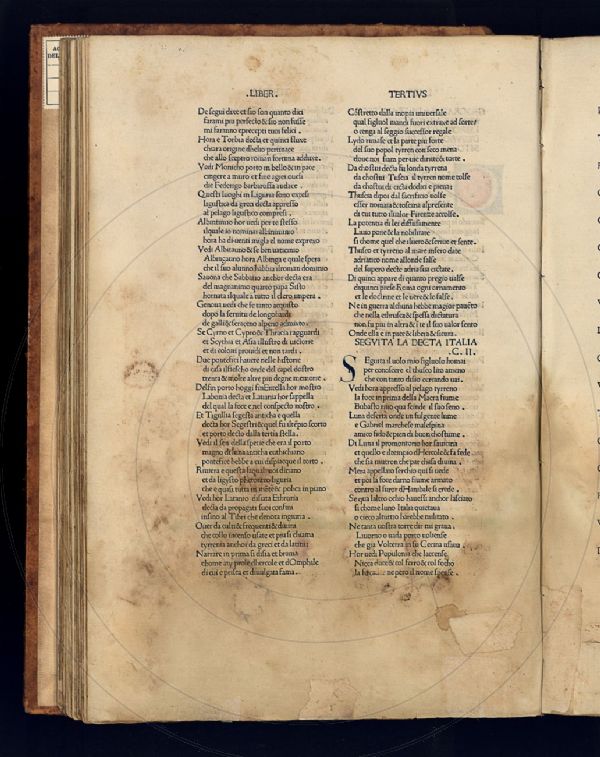 .LIBER.
TERTIVS
De segui duce et sio son quanto dici
farami piu perfecto & sio non fusse
mi faranno e precepti tuoi felici .
Hora e Torbia decta et quinci fluxe
chiara origine dhelio pertinace
che allo sceptro roman fortena adduxe.
Vedi Monicho porto in bello & in pace
cingere a muro et fare agrei cucta
die Federigo barbarussa audace .
Questi luoghi in Liguria sono
lagustica da greci decta appresso
al pelago lagustico compresi .
Albintimio hor vedi per te stesso
ilquale io nominai albiminimo
hora ha di uenti migla el nome expresso
Vedi Albitauno & se ben
Albingauno hora Albinga e quale spera
che il suo alunno habbia il roman dominio
Sauona che Sabbatio anchor decta era
del magnanimo quarto papa Sisto
hornata ilquale a tutto il clero impera .
Genoua uedi che se tanto acquisto
dopo la seruitu de longobardi
de galli & seraceno alpeno admisto .
Se Cyrno et Cypro & Thracia ragguardi
et Scythia et Asia illustro di uictorie
et di coloni prouidi et non tardi .
Due pontefici hauete nelle historie
di casa il fiescho onde del capel
trenta & molte altre piu degne memorie .
Delfin porto hoggi fin Entella hor mostro
Labonia decta et Lauania hor sappella
del qual la foce e nel conspecto nostro .
Et Tigullia segesta anticha e quella
decta hor Segestri & quel
et porto decto dalla tertia stella .
Vedi il sen della sperie che era il porto
magno di luna anticha euthichiano
pontefice hebbe a cui dispiacque il torto .
Riuiera e questa laqual noi diciano
et da ligysto pheronto liguria
che e quasi tutta in poca in piano
Vedi hor Lutano disusa Ethruria
decta da propaga suoi confini
insino al Tiber che denota inguria .
Quei da culti & frequenti & diuini
che collo sacenso usate et prias chiama
tyrrenia anchor da greci et da latini
Narrare in prima si disia et brama
chome aty prole dhercole et dOmphale
di cui e prisca et diuulgata fama .
Cõstretto dalla inopia uniuersale
qual figluol mandi fuori extraxe ad sorte
o tenga al seggio successor regale
Lydo rimase et la parte piu forte
del suo popol tyrren con seco mena
doue noi siam per uie dirupte & torte .
Da chostui decta fu londa tyrrena
da chostui Tuscia il tyrren nome tolse
da chostui di citta dodici e piena
Thuscia dipoi dal sacrificio uolse
esser nomata & toscana al presente
di cui tutto il ualor Firenze accolse .
La potentia di lei diffusamente
Liuio pone & la nobilitate
si chome quel che il uero & scriue et sente .
Thusco et tyrreno al mare infero date
adriatico nome allonde salse
del supero decte adria sua citate .
Di quinci appare di quanto pregio ualse
di quinci prese Roma ogni ornamento
et le doctrine et le uere & le false .
Ne in guerra alchuna hebbe maggior pauẽto
che nella ethrusca & spessa dictatura
non fu piu in altra & i re il suo ualor sento
Onde ella e in pace & libera & sicura .
SEGVITA LA DECTA ITALIA
.C. II.
SEguita il uolo mio figluolo homai
per conoscere el thusco lito ameno
che con tanto disio cercando uai.
Vedi hora appresso al pelago tyrreno
la foce in prima della Macra fiume
Bubasto nilo qua fende il suo seno .
Luna deserta onde un fulgente lume
e Gabriel marchese malespina
amico fido & pien di buon chostume .
Di Luna il promontorio hor saurina
et quello e il tempio dHercole & fa fede
che sia mutron che par chosa diuina .
Mera appellano serchio qui si uede
et poi la fose darno fiume armato
contro al furor dHanibale si crede .
Se qua laltro ochio hauessi anchor lasciato
si chome luno Italia quietaua
o cieco alturno harebbe militato .
Ne tanta uostra torre dir mi graua .
Liuorno o uada porto uolitense
che gia Volterra in su Cecina usaua .
Hor uedi Populonia che lactense